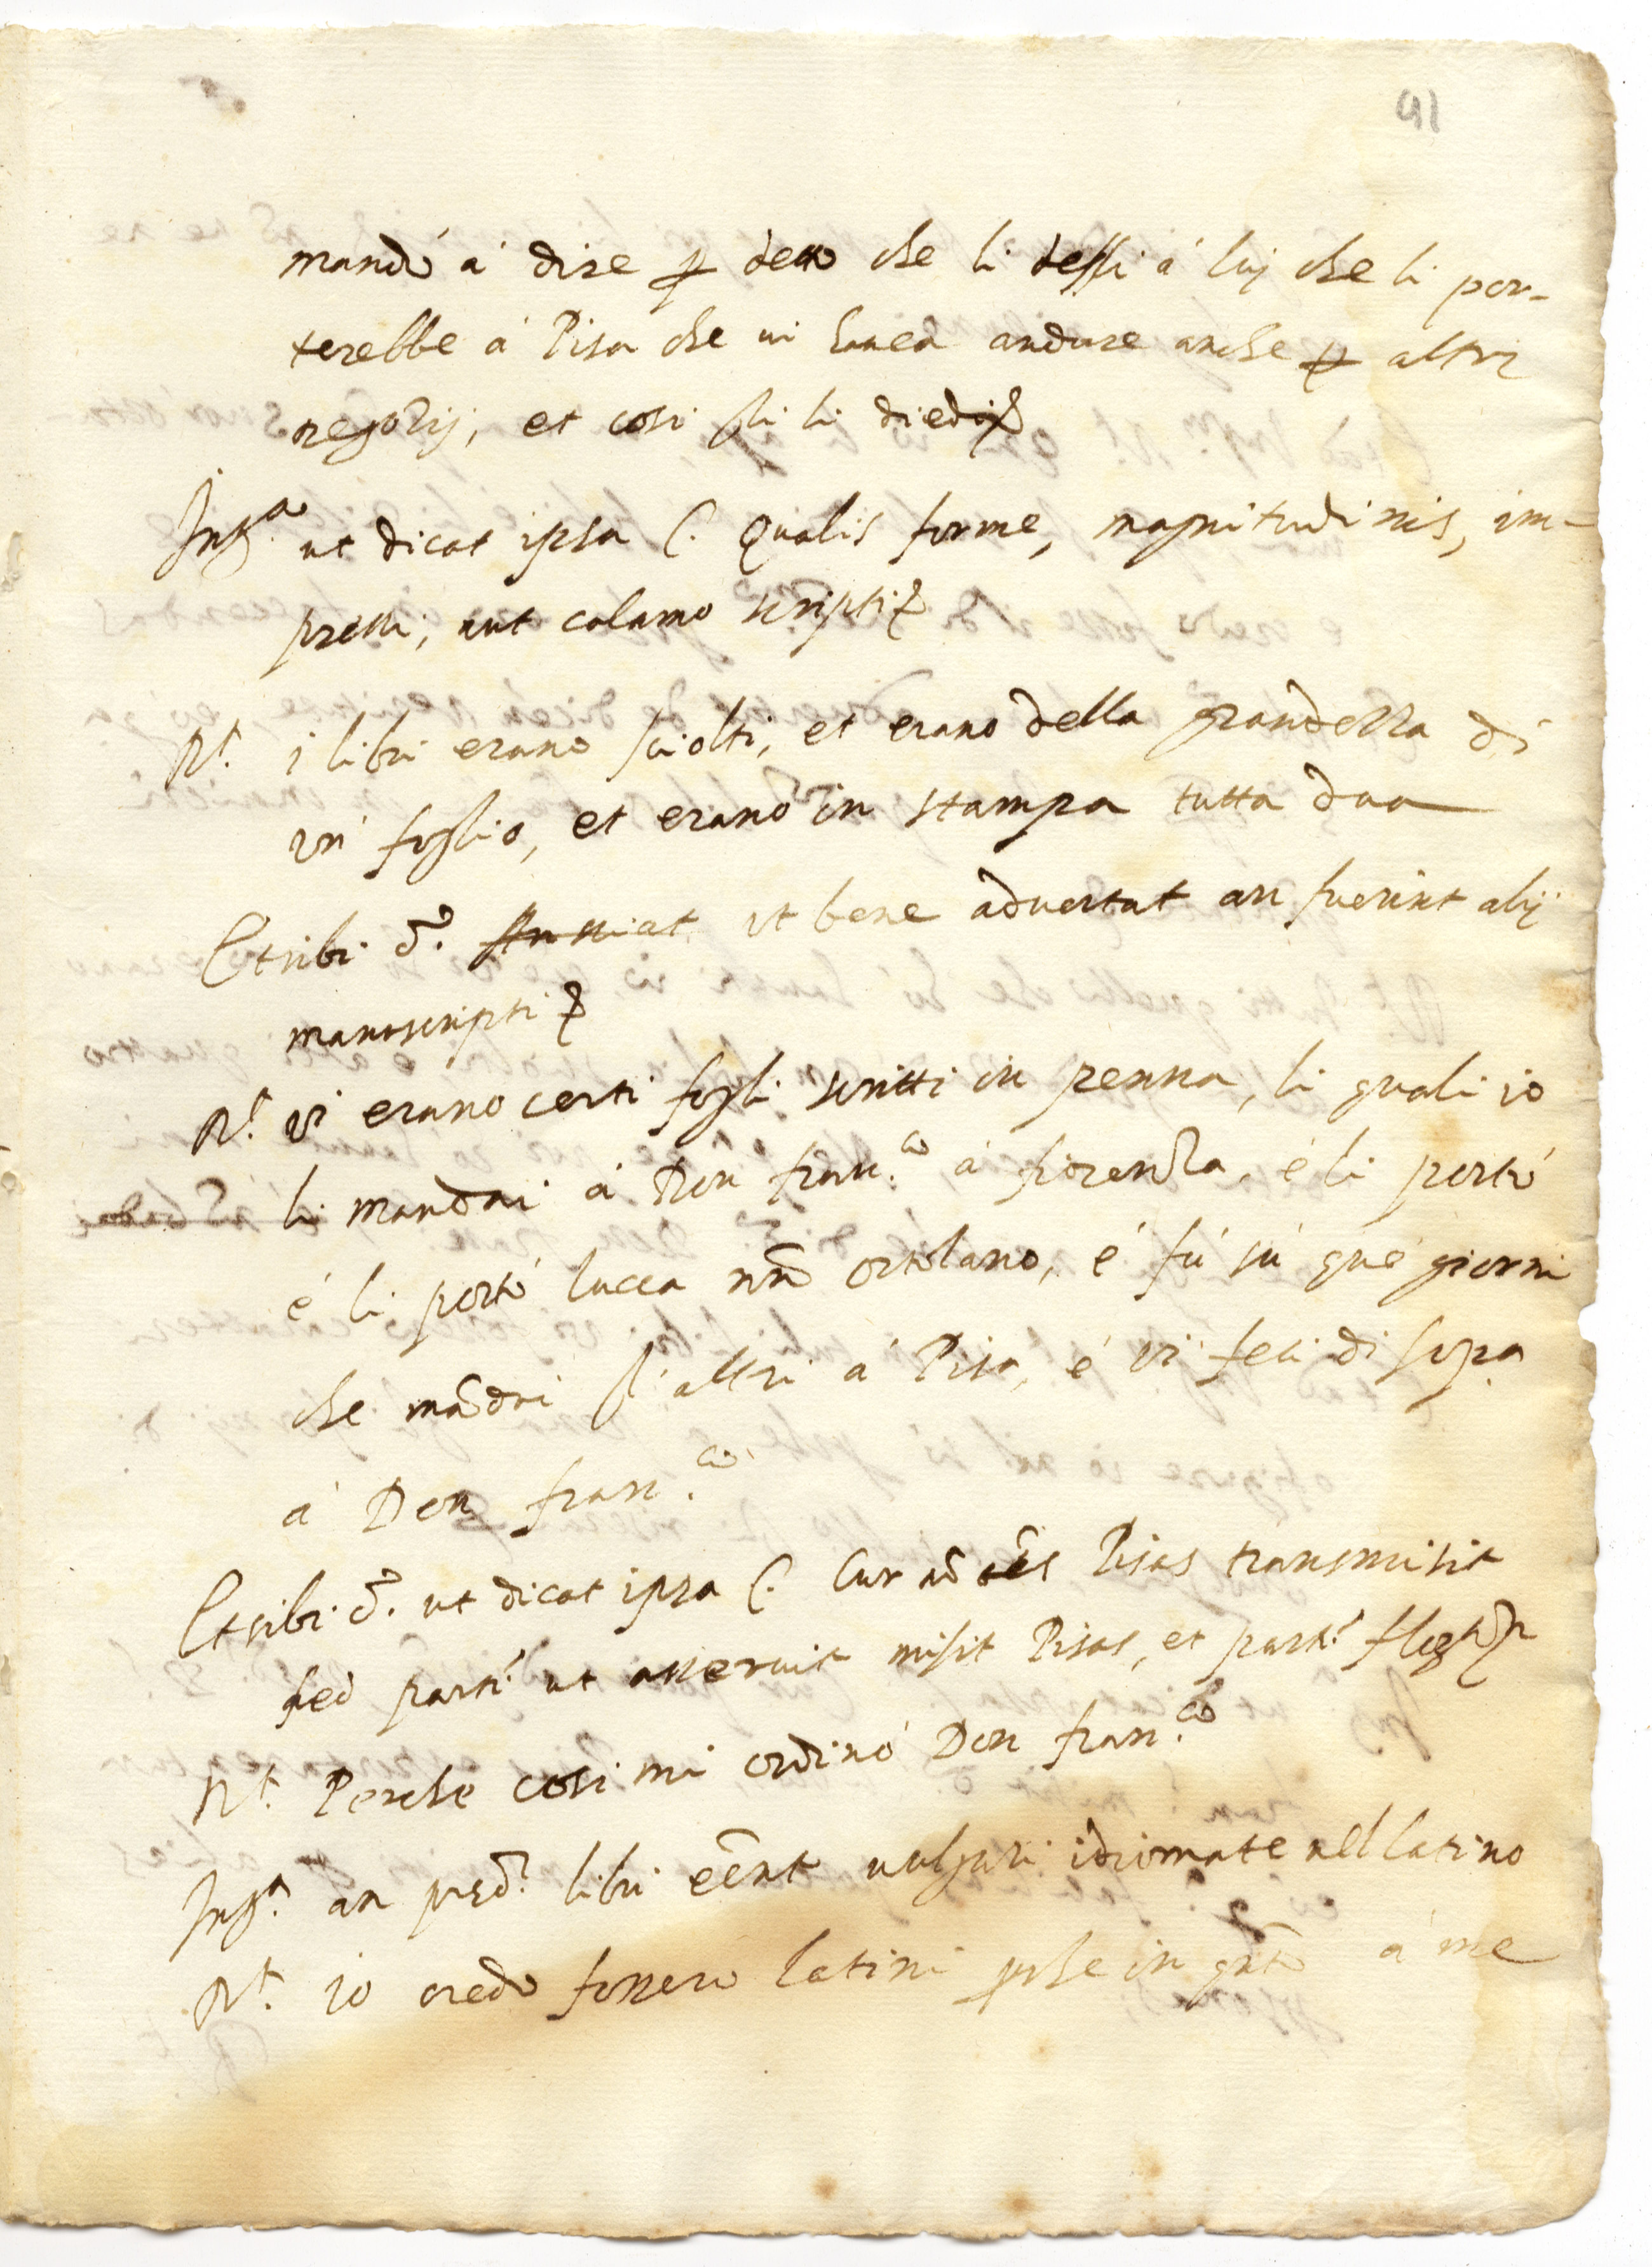 41
mandò à dire p detto che li dessi à lui che li por-
terebbe à Pisa che vi hauea andare anche p altri
negotij, et cosi gli li diedi
Int.a ut dicat ipsa C. Qualis forme, magnitudinis, im-
pressi, aut calamo scripti
R.t i libri erano sciolti, et erano della grandezza di
un foglio, et erano in stampa tutta dua
Et sibi d. ut bene aduertat an fuerint alij
manuscripti
R.t vi erano certi fogli scritti in penna, li quali io
li mandai à Don fran.co à fiorenza, é li portò
é li portò lucca nro ortolano, é fú sú que giorni
che mãdai gl'altri à Pisa, é vi feci di sopra
à Don fran.co
Et sibi d. ut dicat ipsa C. Cur nõ oẽs Pisas transmisit
sed part. ut asseruit misit Pisas, et part.
R.t Perche cosi mi ordinò Don fran.co
Int.a an pred.i libri eẽnt vulgari idiomate uel latino
R.t io credo fossero latini pche in qnto à me